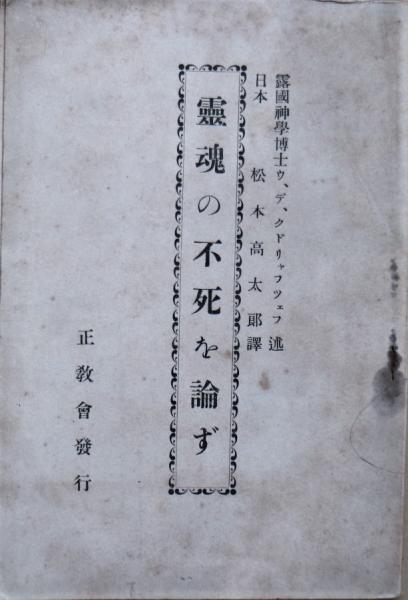 露國神學博士ウ、デ、クドリャフツェフ 述
日本 松本高太郎譯
靈魂の不死を論ず
正敎會發行